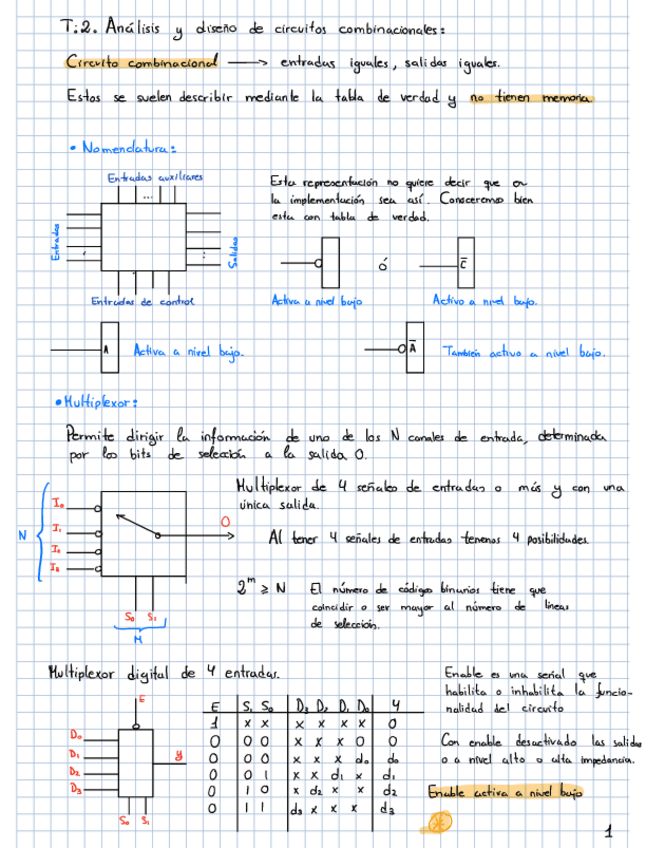 T:2. Análisis y diseño de circuitos combinacionales:
Circuito combinacional ⟶ entradas iguales, salidas iguales.
Estos se suelen describir mediante la tabla de verdad y no tienen memoria
• Nomenclatura:
Entradas auxiliares
...
Entradas
Salidas
Entradas de control
Esta representación no quiere decir que
la implementación sea así. Conoceremos bien
esta con tabla de verdad.
ó
C̅
Activa a nivel bajo
Activo a nivel bajo.
A
Activa a nivel bajo.
A̅
También activo a nivel bajo.
• Multiplexor:
Permite dirigir la información de uno de los N canales de entrada, determinada
por los bits de selección a la salida O.
N
I₀
I₁
I₂
I₃
O
S₀ S₁
M
Multiplexor de 4 señales de entradas o más y con una
única salida.
Al tener 4 señales de entradas tenemos 4 posibilidades.
2ᵐ ≥ N El número de códigos binarios tiene que
coincidir o ser mayor al número de lineas
de selección.
Multiplexor digital de 4 entradas.
E
D₀
D₁
D₂
D₃
y
S₀ S₁
E S₁ S₀ D₃ D₂ D₁ D₀ y
1 x x x x x x 0
0 0 0 x x x 0 0
0 0 0 x x x d₀ d₀
0 0 1 x x d₁ x d₁
0 1 0 x d₂ x x d₂
0 1 1 d₃ x x x d₃
Enable es una señal que
habilita o inhabilita la funcio-
nalidad del circuito
Con enable desactivado las salidas
o a nivel alto o alta impedancia.
Enable activa a nivel bajo
1